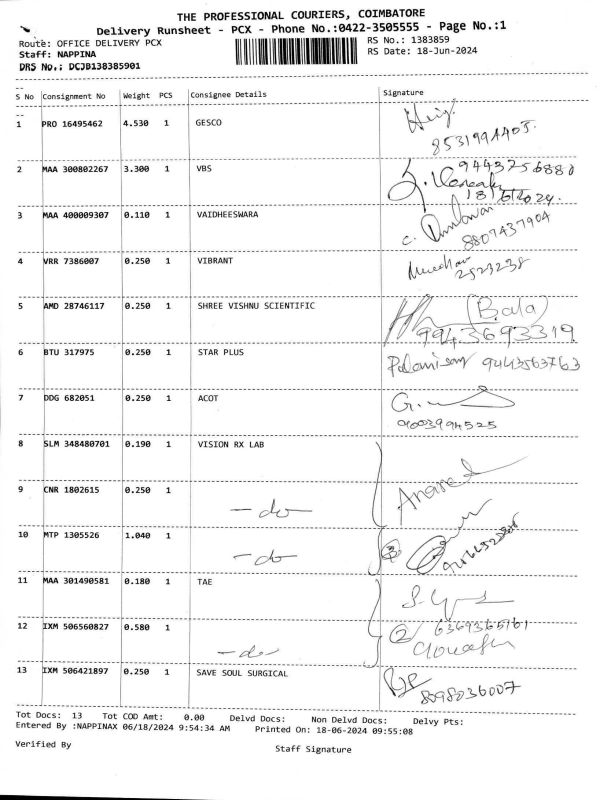 THE PROFESSIONAL COURIERS, COIMBATORE
Delivery Runsheet - PCX - Phone No.:0422-3505555 - Page No.:1
Route: OFFICE DELIVERY PCX RS No.: 1383859
Staff: NAPPINA RS Date: 18-Jun-2024
DRS No.: DCJB138385901
S No Consignment No Weight PCS Consignee Details Signature
1 PRO 16495462 4.530 1 GESCO
8531994405.
2 MAA 300802267 3.300 1 VBS 9443256880
18/6/2024.
3 MAA 400009307 0.110 1 VAIDHEESWARA
8807437904
4 VRR 7386007 0.250 1 VIBRANT
2523238
5 AMD 28746117 0.250 1 SHREE VISHNU SCIENTIFIC (Bala)
9943693319
6 BTU 317975 0.250 1 STAR PLUS Palanisam 9443563763
7 DDG 682051 0.250 1 ACOT
9003994525
8 SLM 348480701 0.190 1 VISION RX LAB
9 CNR 1802615 0.250 1 -do- Anand
10 MTP 1305526 1.040 1 -do- 3
11 MAA 301490581 0.180 1 TAE
12 IXM 506560827 0.580 1 -do- 2 6369365161
13 IXM 506421897 0.250 1 SAVE SOUL SURGICAL
8098036007
Tot Docs: 13 Tot COD Amt: 0.00 Delvd Docs: Non Delvd Docs: Delvy Pts:
Entered By :NAPPINAX 06/18/2024 9:54:34 AM Printed On: 18-06-2024 09:55:08
Verified By Staff Signature